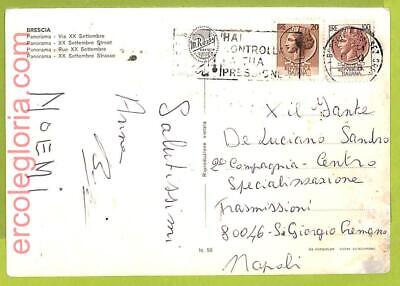 BRESCIA
Panorama - Via XX Settembre
Panorama - XX Settembre Street
Panorama - Rue XX Settembre
Panorama - XX Settembre Strasse
HAI
CONTROLLATO
LA TUA
PRESSIONE
LIRE 20
LIRE 100
ITALIANA
Salutissimi
Anna
NOEMI
X il Fante
De Luciano Sandro
2ª Compagnia - Centro
Specializzazione
Trasmissioni
80046 - S. Giorgio Cremano
Napoli
Riproduzione vietata
N. 56
ercolegloria.com